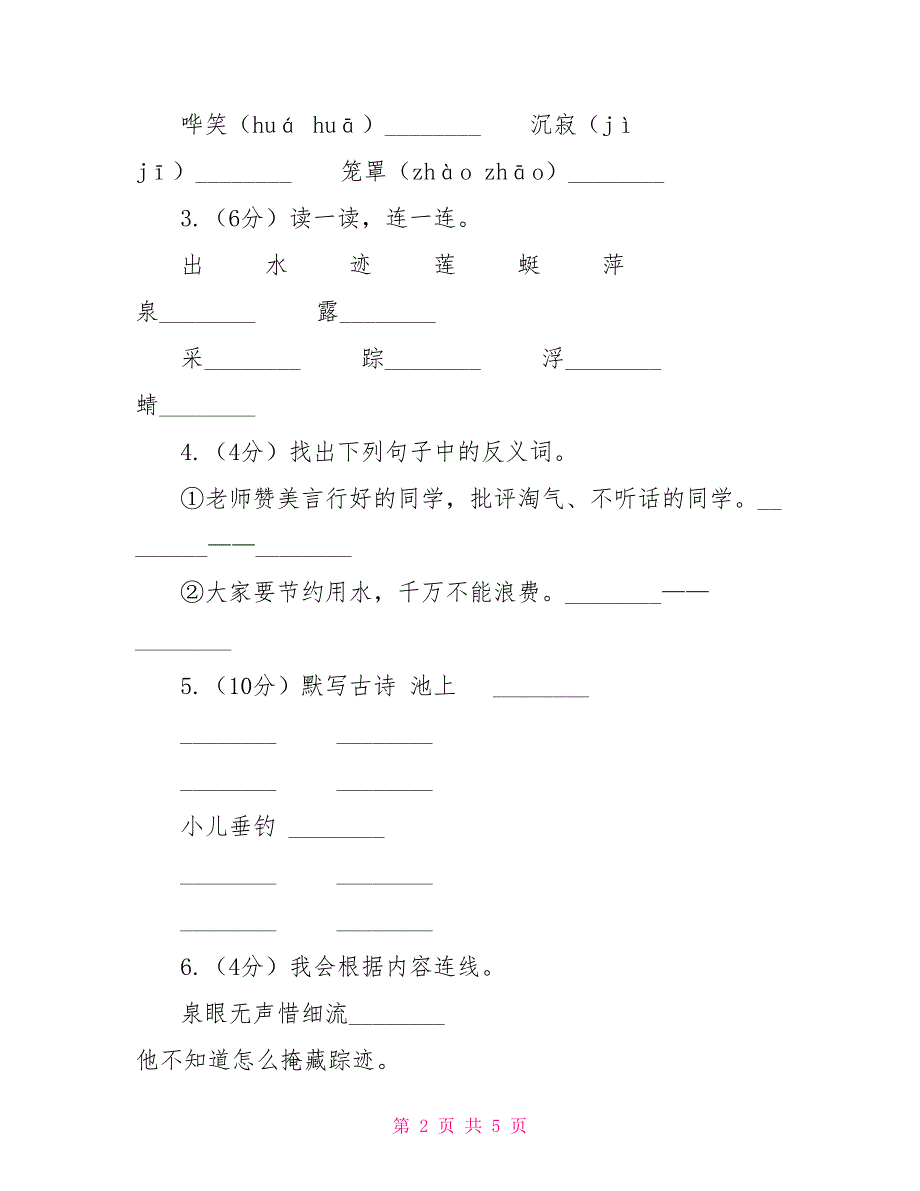 哗笑（huá huā）________ 沉寂（jì
jī）________ 笼罩（zhào zhāo）________
3. （6分）读一读，连一连。
出 水 迹 莲 蜓 萍
泉________ 露________
采________ 踪________ 浮________
蜻________
4. （4分）找出下列句子中的反义词。
①老师赞美言行好的同学，批评淘气、不听话的同学。__
______——________
②大家要节约用水，千万不能浪费。________——
________
5. （10分）默写古诗 池上 ________
________ ________
________ ________
小儿垂钓 ________
________ ________
________ ________
6. （4分）我会根据内容连线。
泉眼无声惜细流________
他不知道怎么掩藏踪迹。
第 2 页 共 5 页